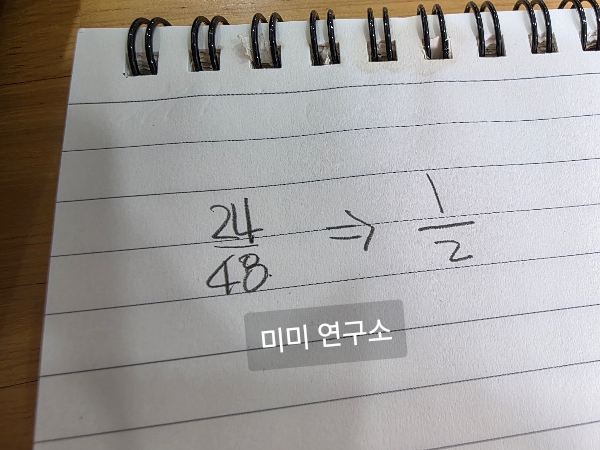 24/48 ⇒ 1/2
미미 연구소